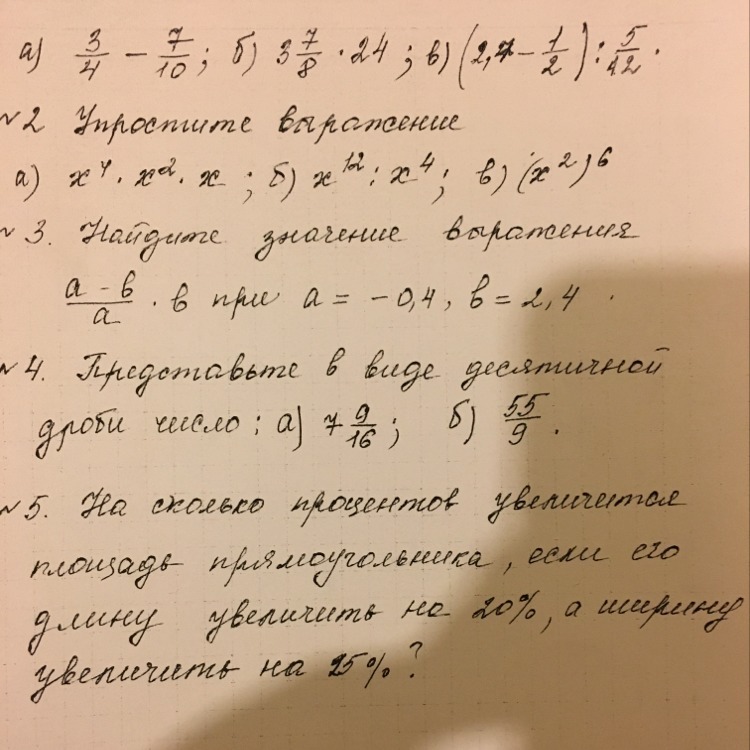 а) 3/4 - 7/10; б) 3 7/8 · 24; в) (2,7 - 1/2) : 5/12.
№2 Упростите выражение
а) x⁴ · x² · x; б) x¹² : x⁴; в) (x²)⁶
№3. Найдите значение выражения
(а - в)/а · в при а = -0,4, в = 2,4.
№4. Представьте в виде десятичной
дроби число: а) 7 9/16; б) 55/9.
№5. На сколько процентов увеличится
площадь прямоугольника, если его
длину увеличить на 20%, а ширину
увеличить на 25%?